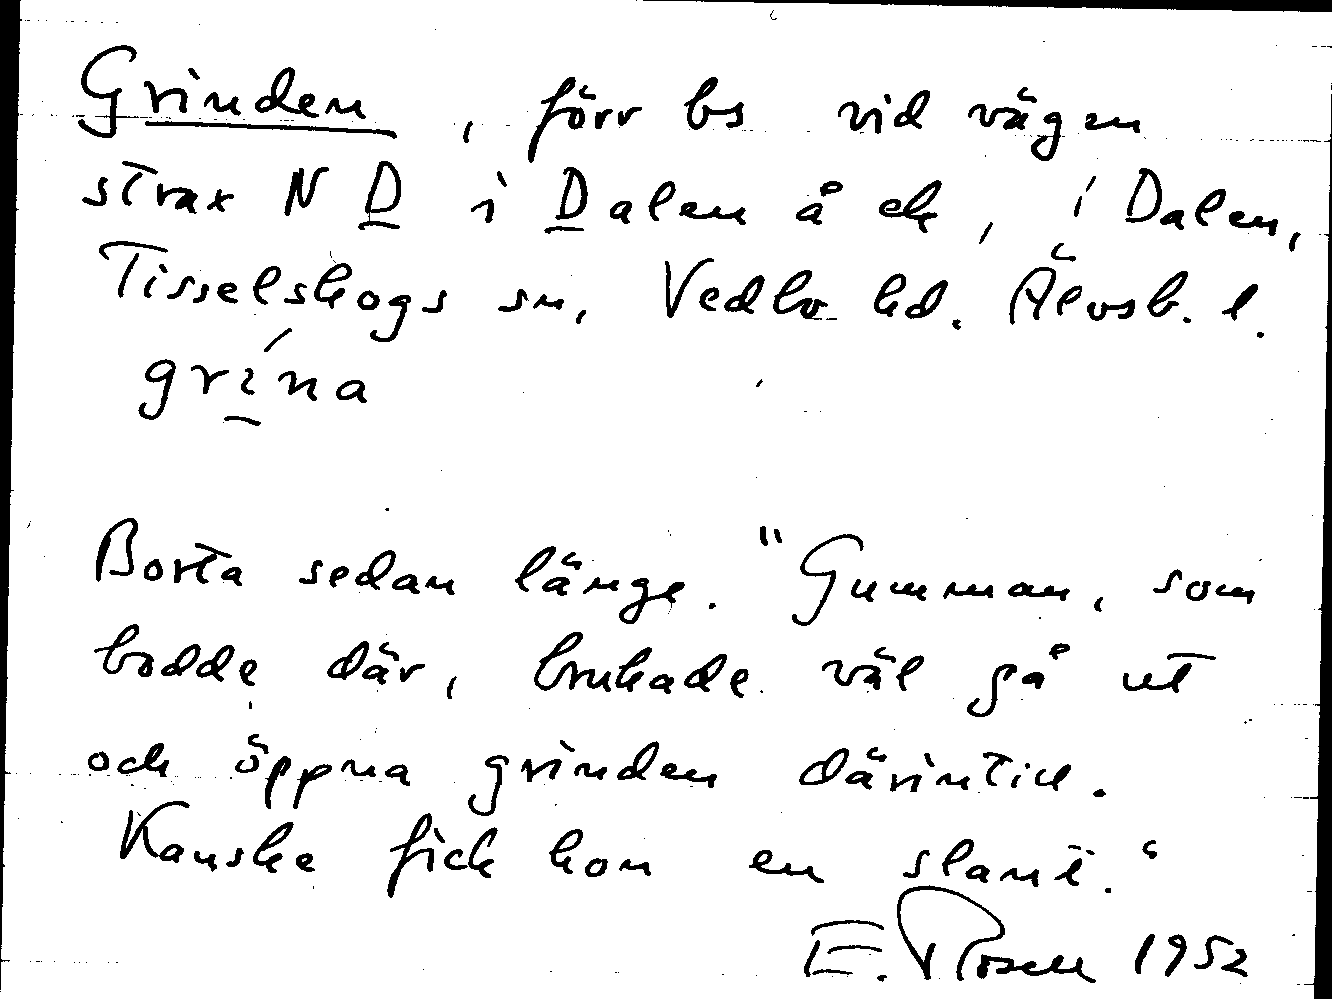 Grinden, förr bs vid vägen
strax N D i Dalen å ek, i Dalen,
Tisselskogs sn, Vedbo hd. Älvsb. l.
grína
Borta sedan länge. "Gumman, som
bodde där, brukade väl gå ut
och öppna grinden därintill.
Kanske fick hon en slant."
E. Rosell 1952